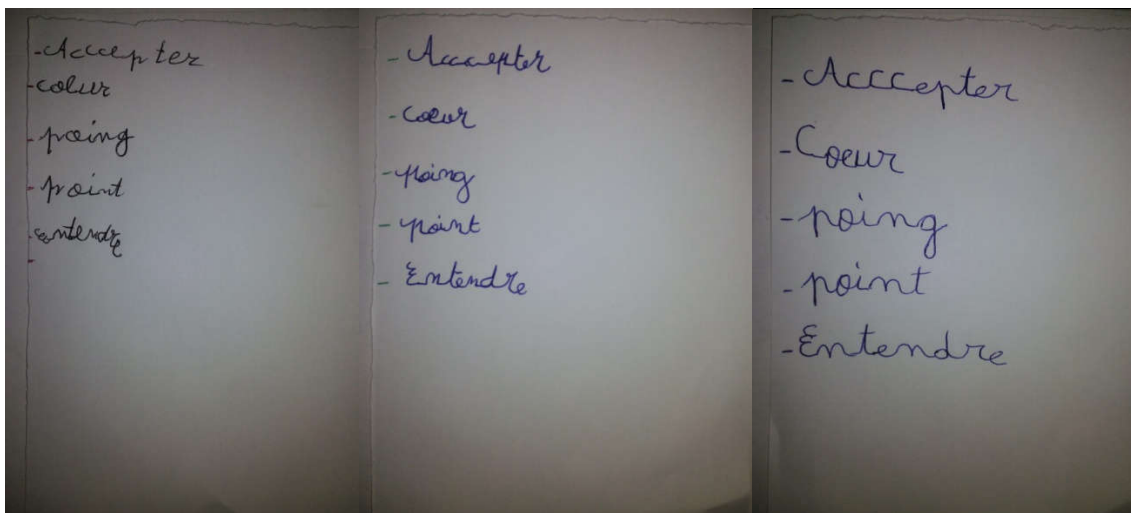 -Acccepter
-coeur
-poing
-point
-entendre
-
- Acccepter
- coeur
- poing
- point
- Entendre
- Acccepter
- Coeur
- poing
- point
- Entendre